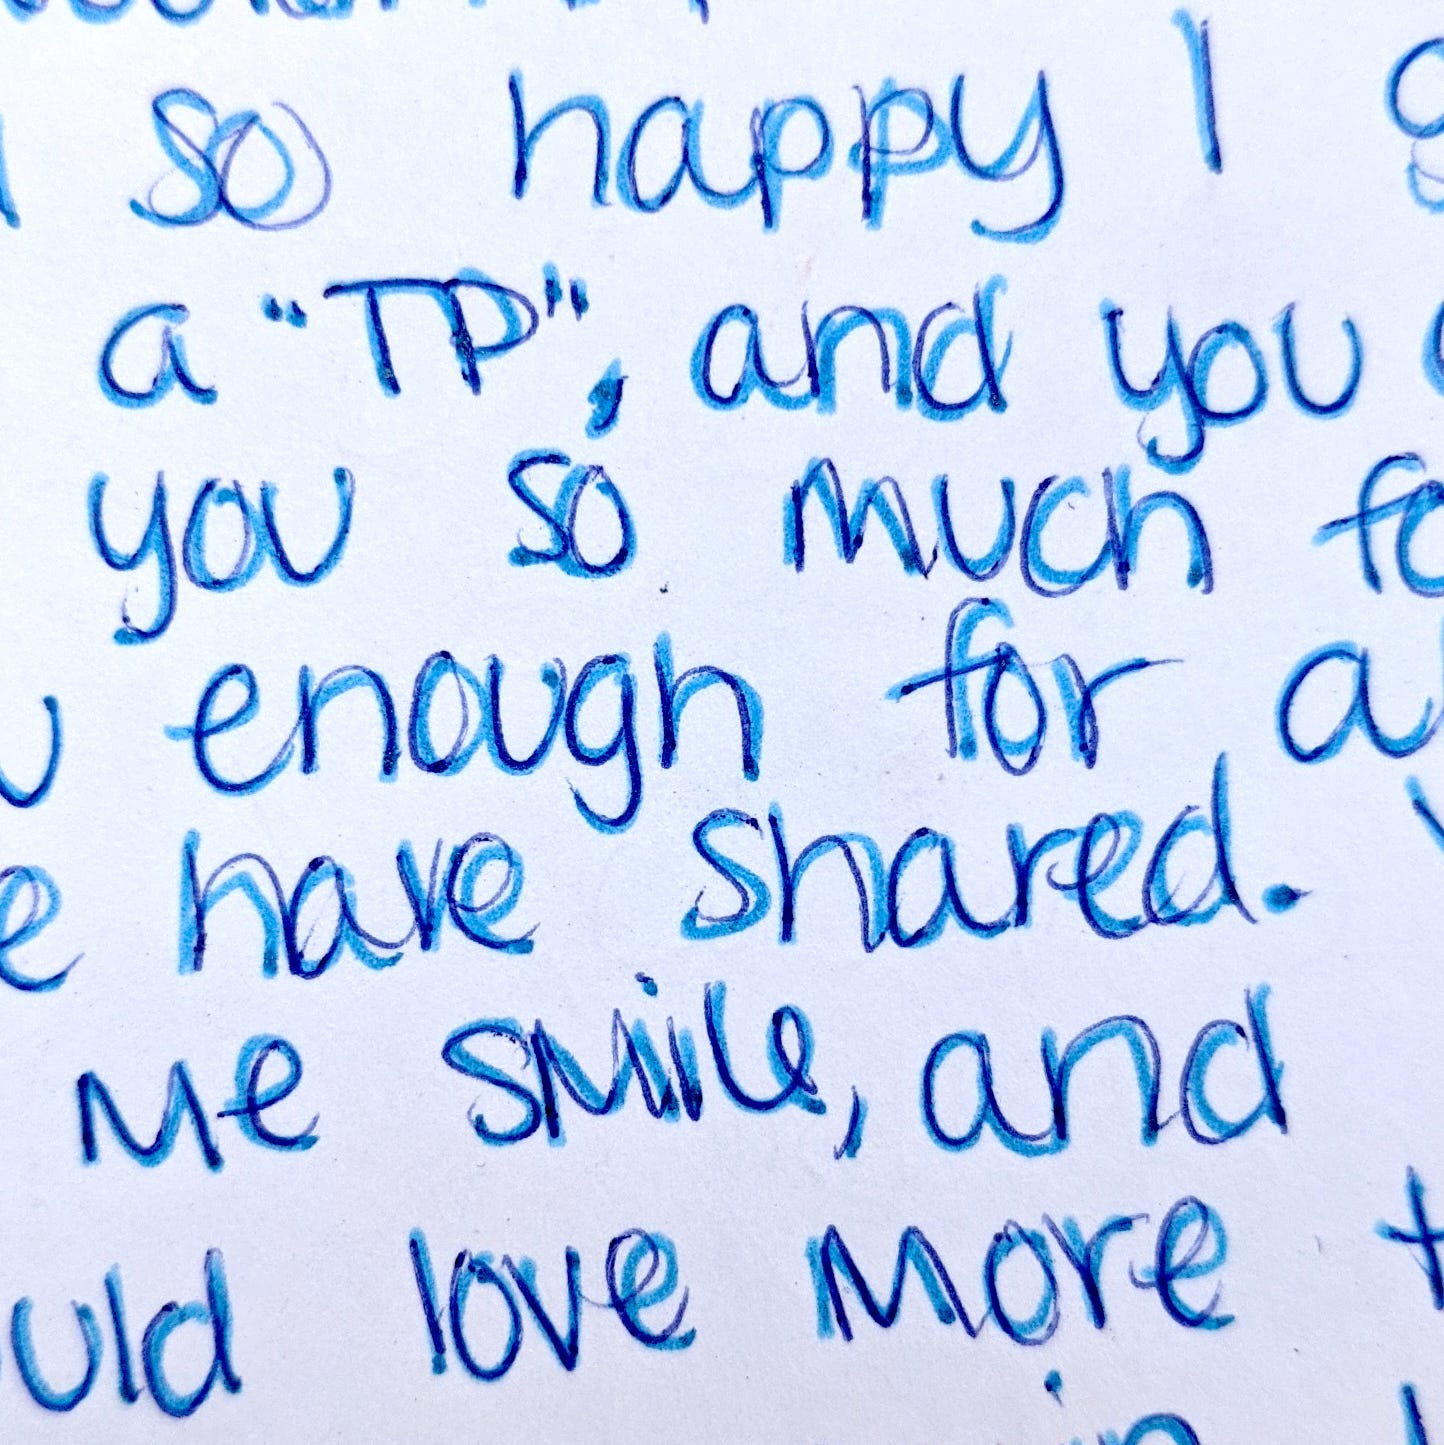 so happy I
a "TP", and you
you so much fo
enough for a
e have shared.
me smile, and
uld love more t
in